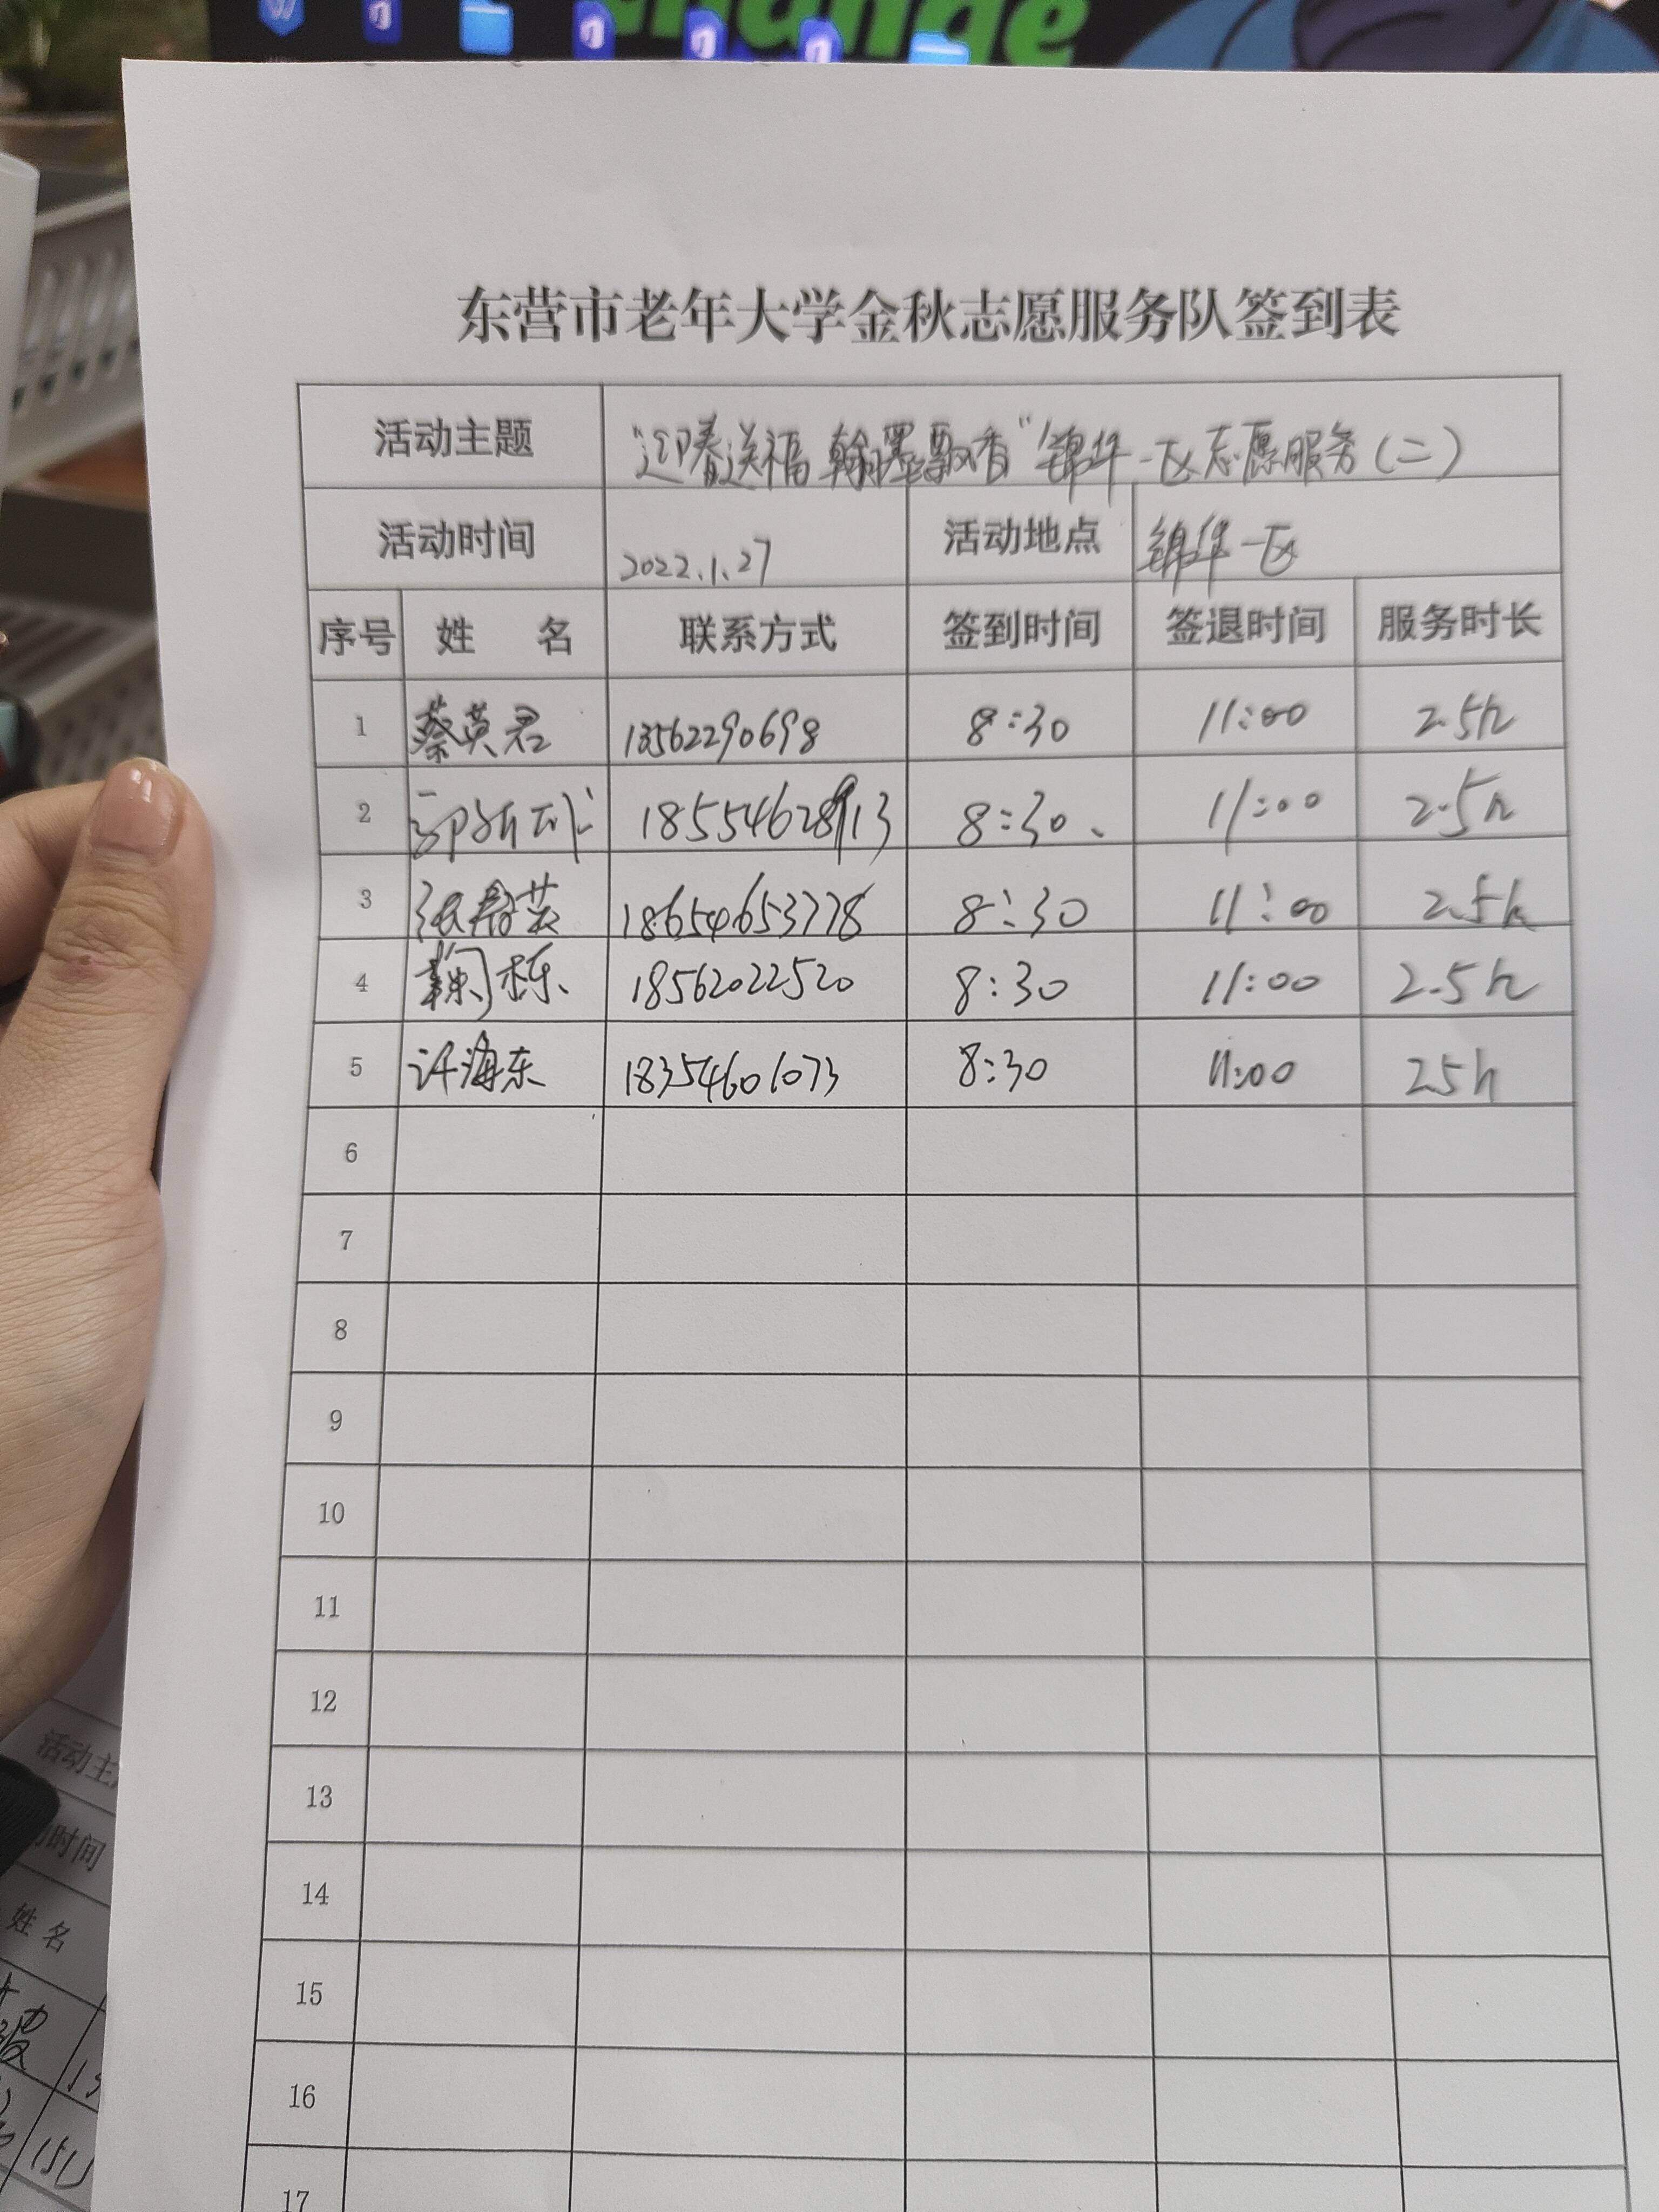 change
东营市老年大学金秋志愿服务队签到表
活动主题 "迎春送福 翰墨飘香"锦华一区志愿服务(二)
活动时间 2022.1.27 活动地点 锦华一区
序号 姓 名 联系方式 签到时间 签退时间 服务时长
1 蔡英君 13562290698 8:30 11:00 2.5h
2 8:30 11:00 2.5h
3 18654653778 8:30 11:00 2.5h
4 鞠栋 18562022520 8:30 11:00 2.5h
5 许海东 18354601073 8:30 11:00 2.5h
6
7
8
9
10
11
12
13
14
15
16
17
活动主
时间
姓 名
151